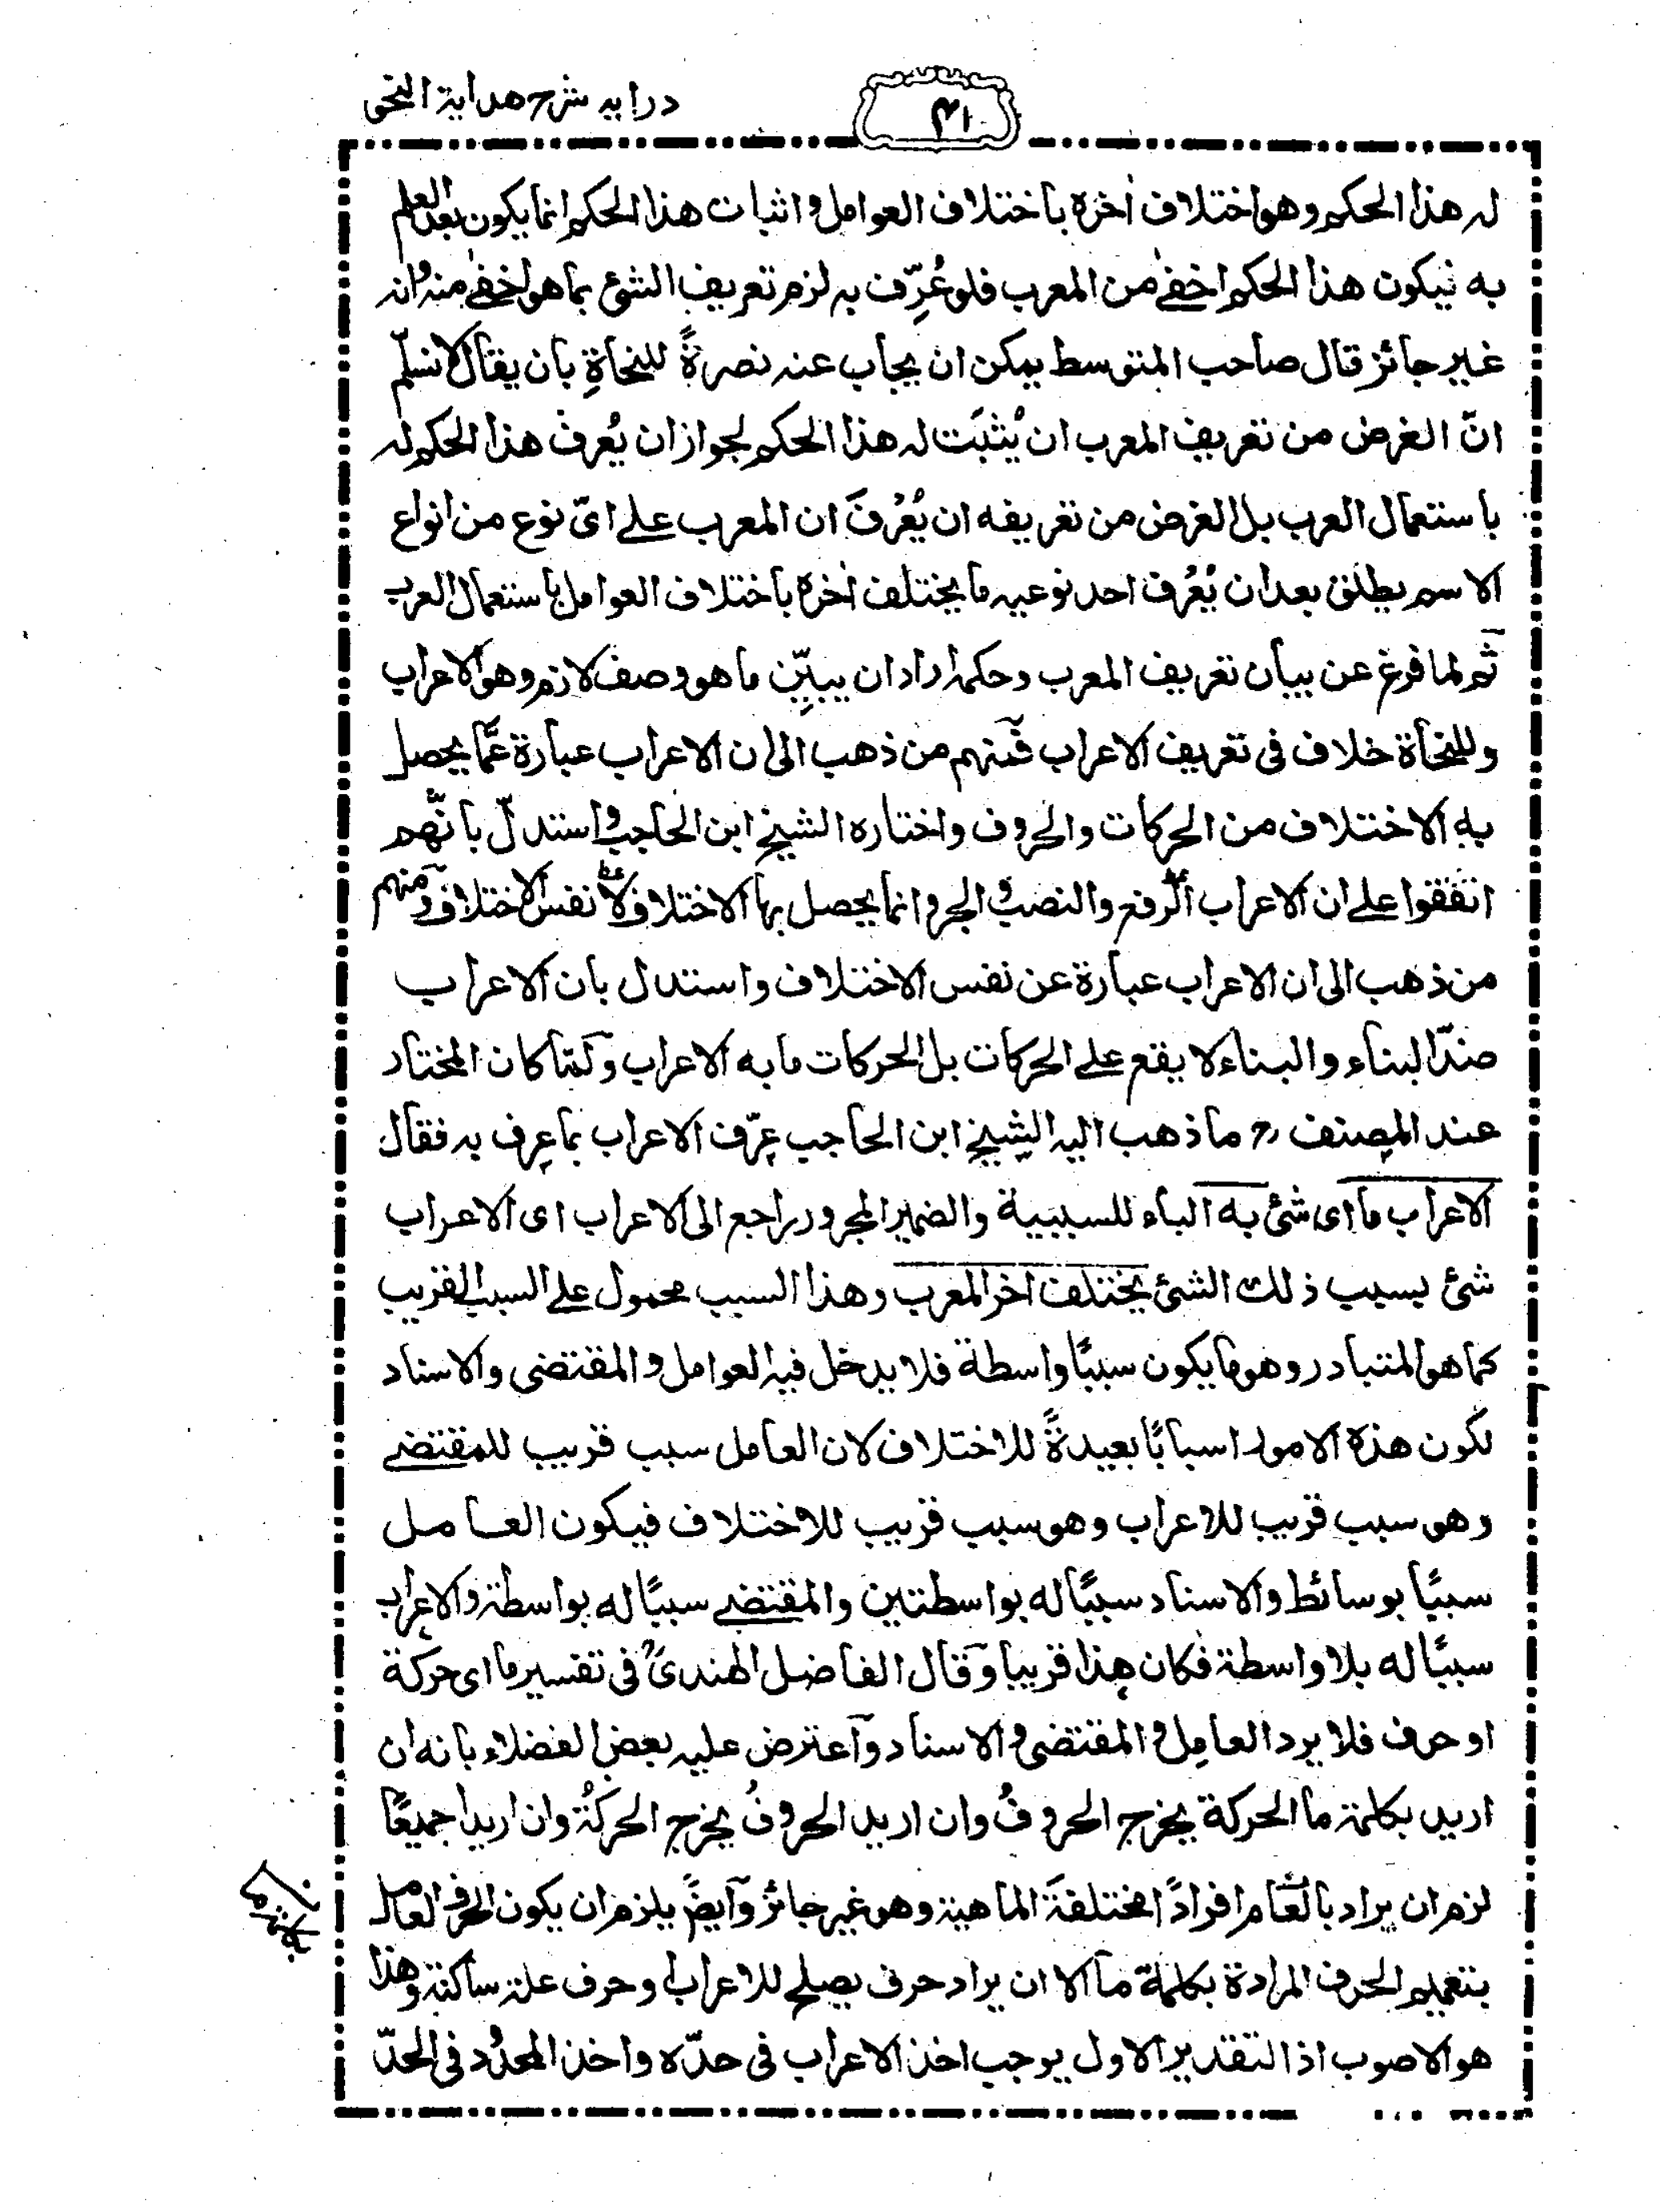 درايه شرح هداية النحو
٤١
له هذا الحكم وهو اختلاف اٰخره باختلاف العوامل و اثبات هذا الحكم انما يكون بعد العلم
به فيكون هذا الحكم اخفىٰ من المعرب فلو عُرِّف به لزم تعريف الشئ بما هو اخفىٰ منه وانه
غير جائز قال صاحب المتوسط يمكن ان يجاب عنه نصرةً للنحاةِ بان يقال لا نسلّم
انّ الغرض من تعريف المعرب ان يُثبَت له هذا الحكم لجواز ان يُعرف هذا الحكم له
باستعمال العرب بل الغرض من تعريفه ان يُعْرفَ ان المعرب على اىّ نوع من انواع
الاسم يطلق بعد ان يُعْرف احد نوعيه ما يختلف اٰخره باختلاف العوامل باستعمال العرب
ثم لما فرغ عن بيان تعريف المعرب وحكمه اراد ان يبيِّن ما هو وصف لازم وهو الاعراب
وللنحاة خلاف فى تعريف الاعراب فمنهم من ذهب الى ان الاعراب عبارة عمّا يحصل
به الاختلاف من الحركات والحروف واختاره الشيخ ابن الحاجب واستدلّ بانّهم
اتفقوا على ان الاعراب الرفع والنصب والجر وانما يحصل بها الاختلاف لا نفس الاختلاف ومنهم
من ذهب الى ان الاعراب عبارة عن نفس الاختلاف واستدل بان الاعراب
ضدّ البناء والبناء لا يقع على الحركات بل الحركات ما به الاعراب ولمّا كان المختار
عند المصنف رح ما ذهب اليه الشيخ ابن الحاجب عرّف الاعراب بما عرف به فقال
الاعراب ما اى شئ به الباء للسببية والضمير المجرور راجع الى الاعراب اى الاعراب
شئ بسبب ذلك الشئ يختلف اٰخر المعرب وهذا السبب محمول على السبب القريب
كما هو المتبادر وهو ما يكون سببًا واسطة فلا يدخل فيه العوامل و المقتضى والاسناد
لكون هذه الامور اسبابًا بعيدةً للاختلاف لان العامل سبب قريب للمقتضے
وهو سبب قريب للاعراب وهو سبب قريب للاختلاف فيكون العامل
سببًا بوسائط والاسناد سببًا له بواسطتين والمقتضے سببًا له بواسطة والاعراب
سببًا له بلا واسطة فكان هذا قريبا وقال الفاضل الهندىؒ فى تفسير ما اى حركة
او حرف فلا يرد العامل و المقتضى و الاسناد واعترض عليه بعض الفضلاء بانه ان
اريد بكلمة ما الحركة يخرج الحروفُ وان اريد الحروفُ يخرج الحركةُ وان اريدا جميعًا
لزم ان يراد بالعام افرادًا مختلفةَ الماهية وهو غير جائز وايضً يلزم ان يكون الحرف العامل
بتعميم الحرف المرادة بكلمة ما الا ان يراد حرف يصلح للاعراب و حرف علة ساكنة وهذا
هو الاصوب اذ التقدير الاول يوجب اخذ الاعراب فى حدّه واخذ المحدُود فى الحدّ